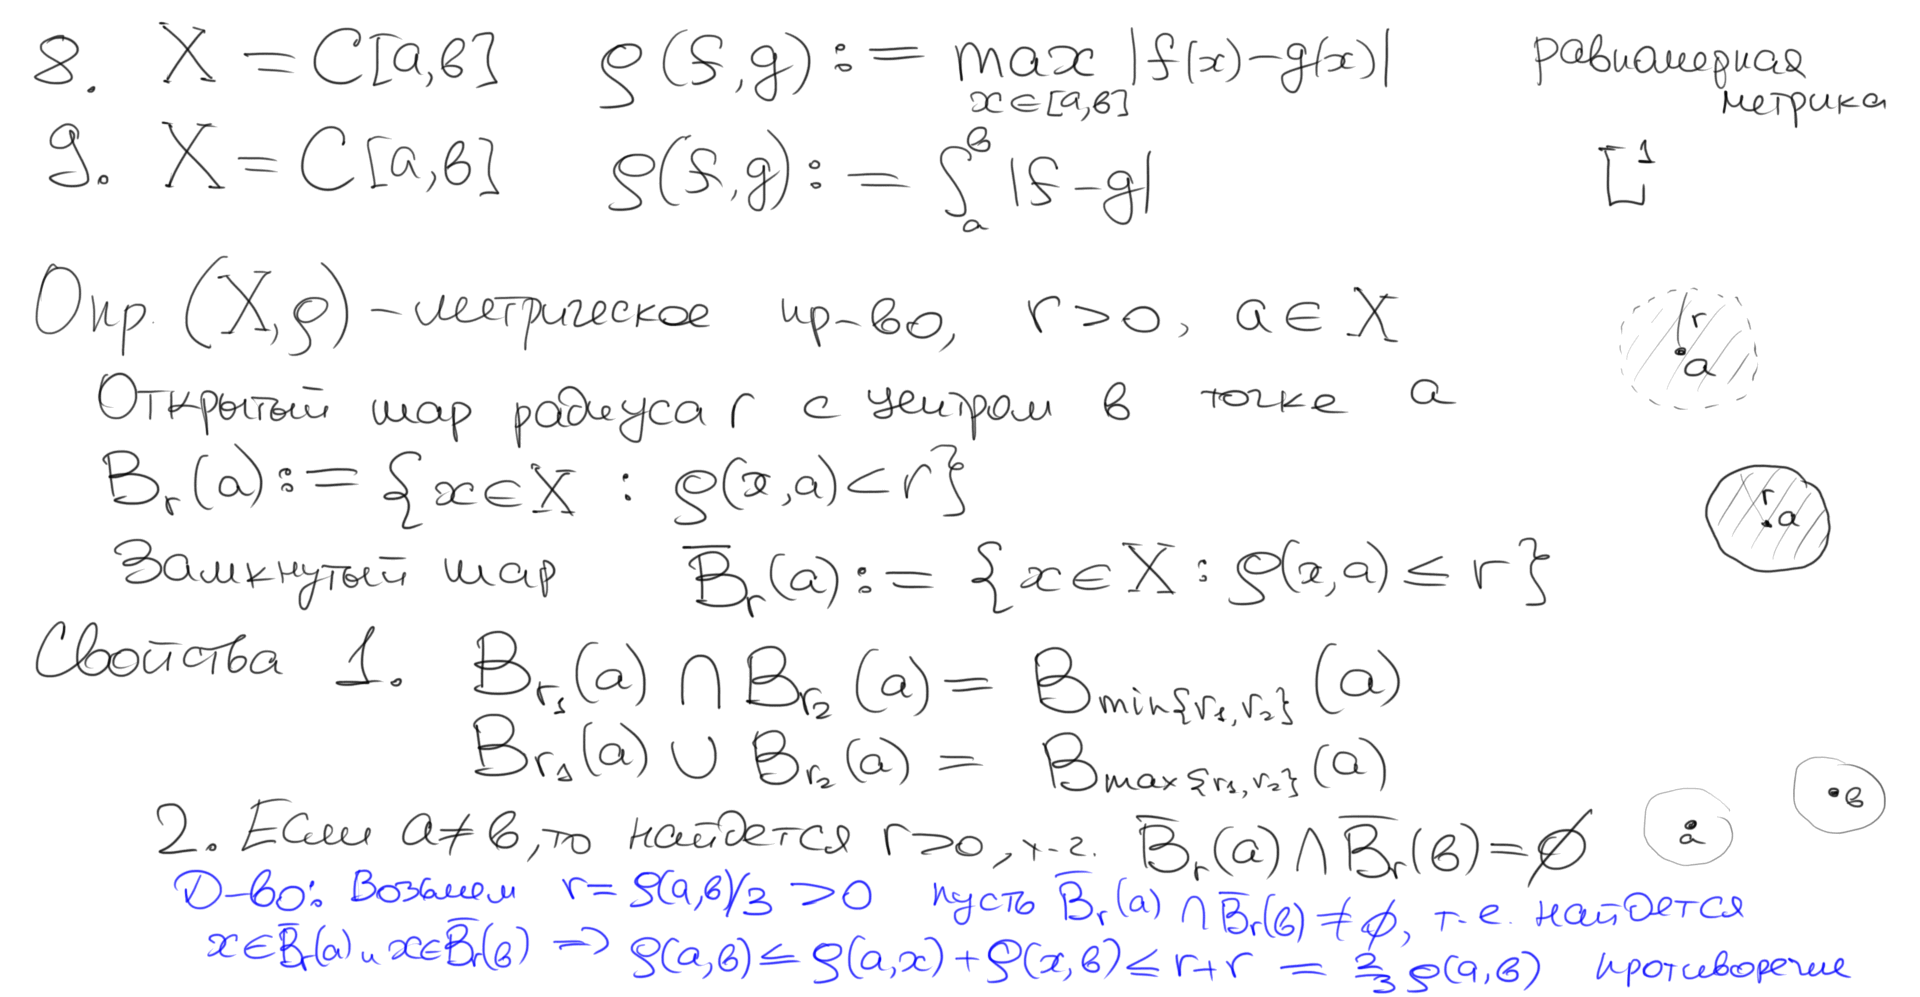 8. X = C[a,b] ρ(f,g) := max |f(x)-g(x)| равномерная
x∈[a,b] метрика
9. X = C[a,b] ρ(f,g) := ∫_a^b |f-g| L¹
Опр. (X,ρ) - метрическое пр-во, r>0, a∈X
r
a
Открытый шар радиуса r с центром в точке a
B_r(a) := {x∈X : ρ(x,a)<r}
r
a
Замкнутый шар B̅_r(a) := {x∈X : ρ(x,a) ≤ r}
Свойства 1. B_{r₁}(a) ∩ B_{r₂}(a) = B_{min{r₁,r₂}}(a)
B_{r₁}(a) ∪ B_{r₂}(a) = B_{max{r₁,r₂}}(a)
2. Если a≠b, то найдется r>0, т.ч. B̅_r(a) ∩ B̅_r(b) = ∅
a
b
Д-во: Возьмем r = ρ(a,b)/3 > 0 пусть B̅_r(a) ∩ B̅_r(b) ≠ ∅, т.е. найдется
x∈B̅_r(a) и x∈B̅_r(b) ⇒ ρ(a,b) ≤ ρ(a,x) + ρ(x,b) ≤ r+r = 2/3 ρ(a,b) противоречие